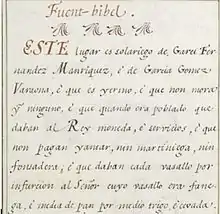 Fuent-bibel.
ESTE lugar es solariego de Garci Fer-
nandez Manriquez, è de Garcia Gomez
Varzona, è que es yermo, è que non mora
y ninguno, è que quando era poblado que
daban al Rey moneda, è servicios, è que
non pagan yantar, nin martiniega, nin
fonsadera, è que daban cada vasallo por
infurcion al Señor cuyo vasallo era fane-
ga, è media de pan por medio trigo, è cevada.